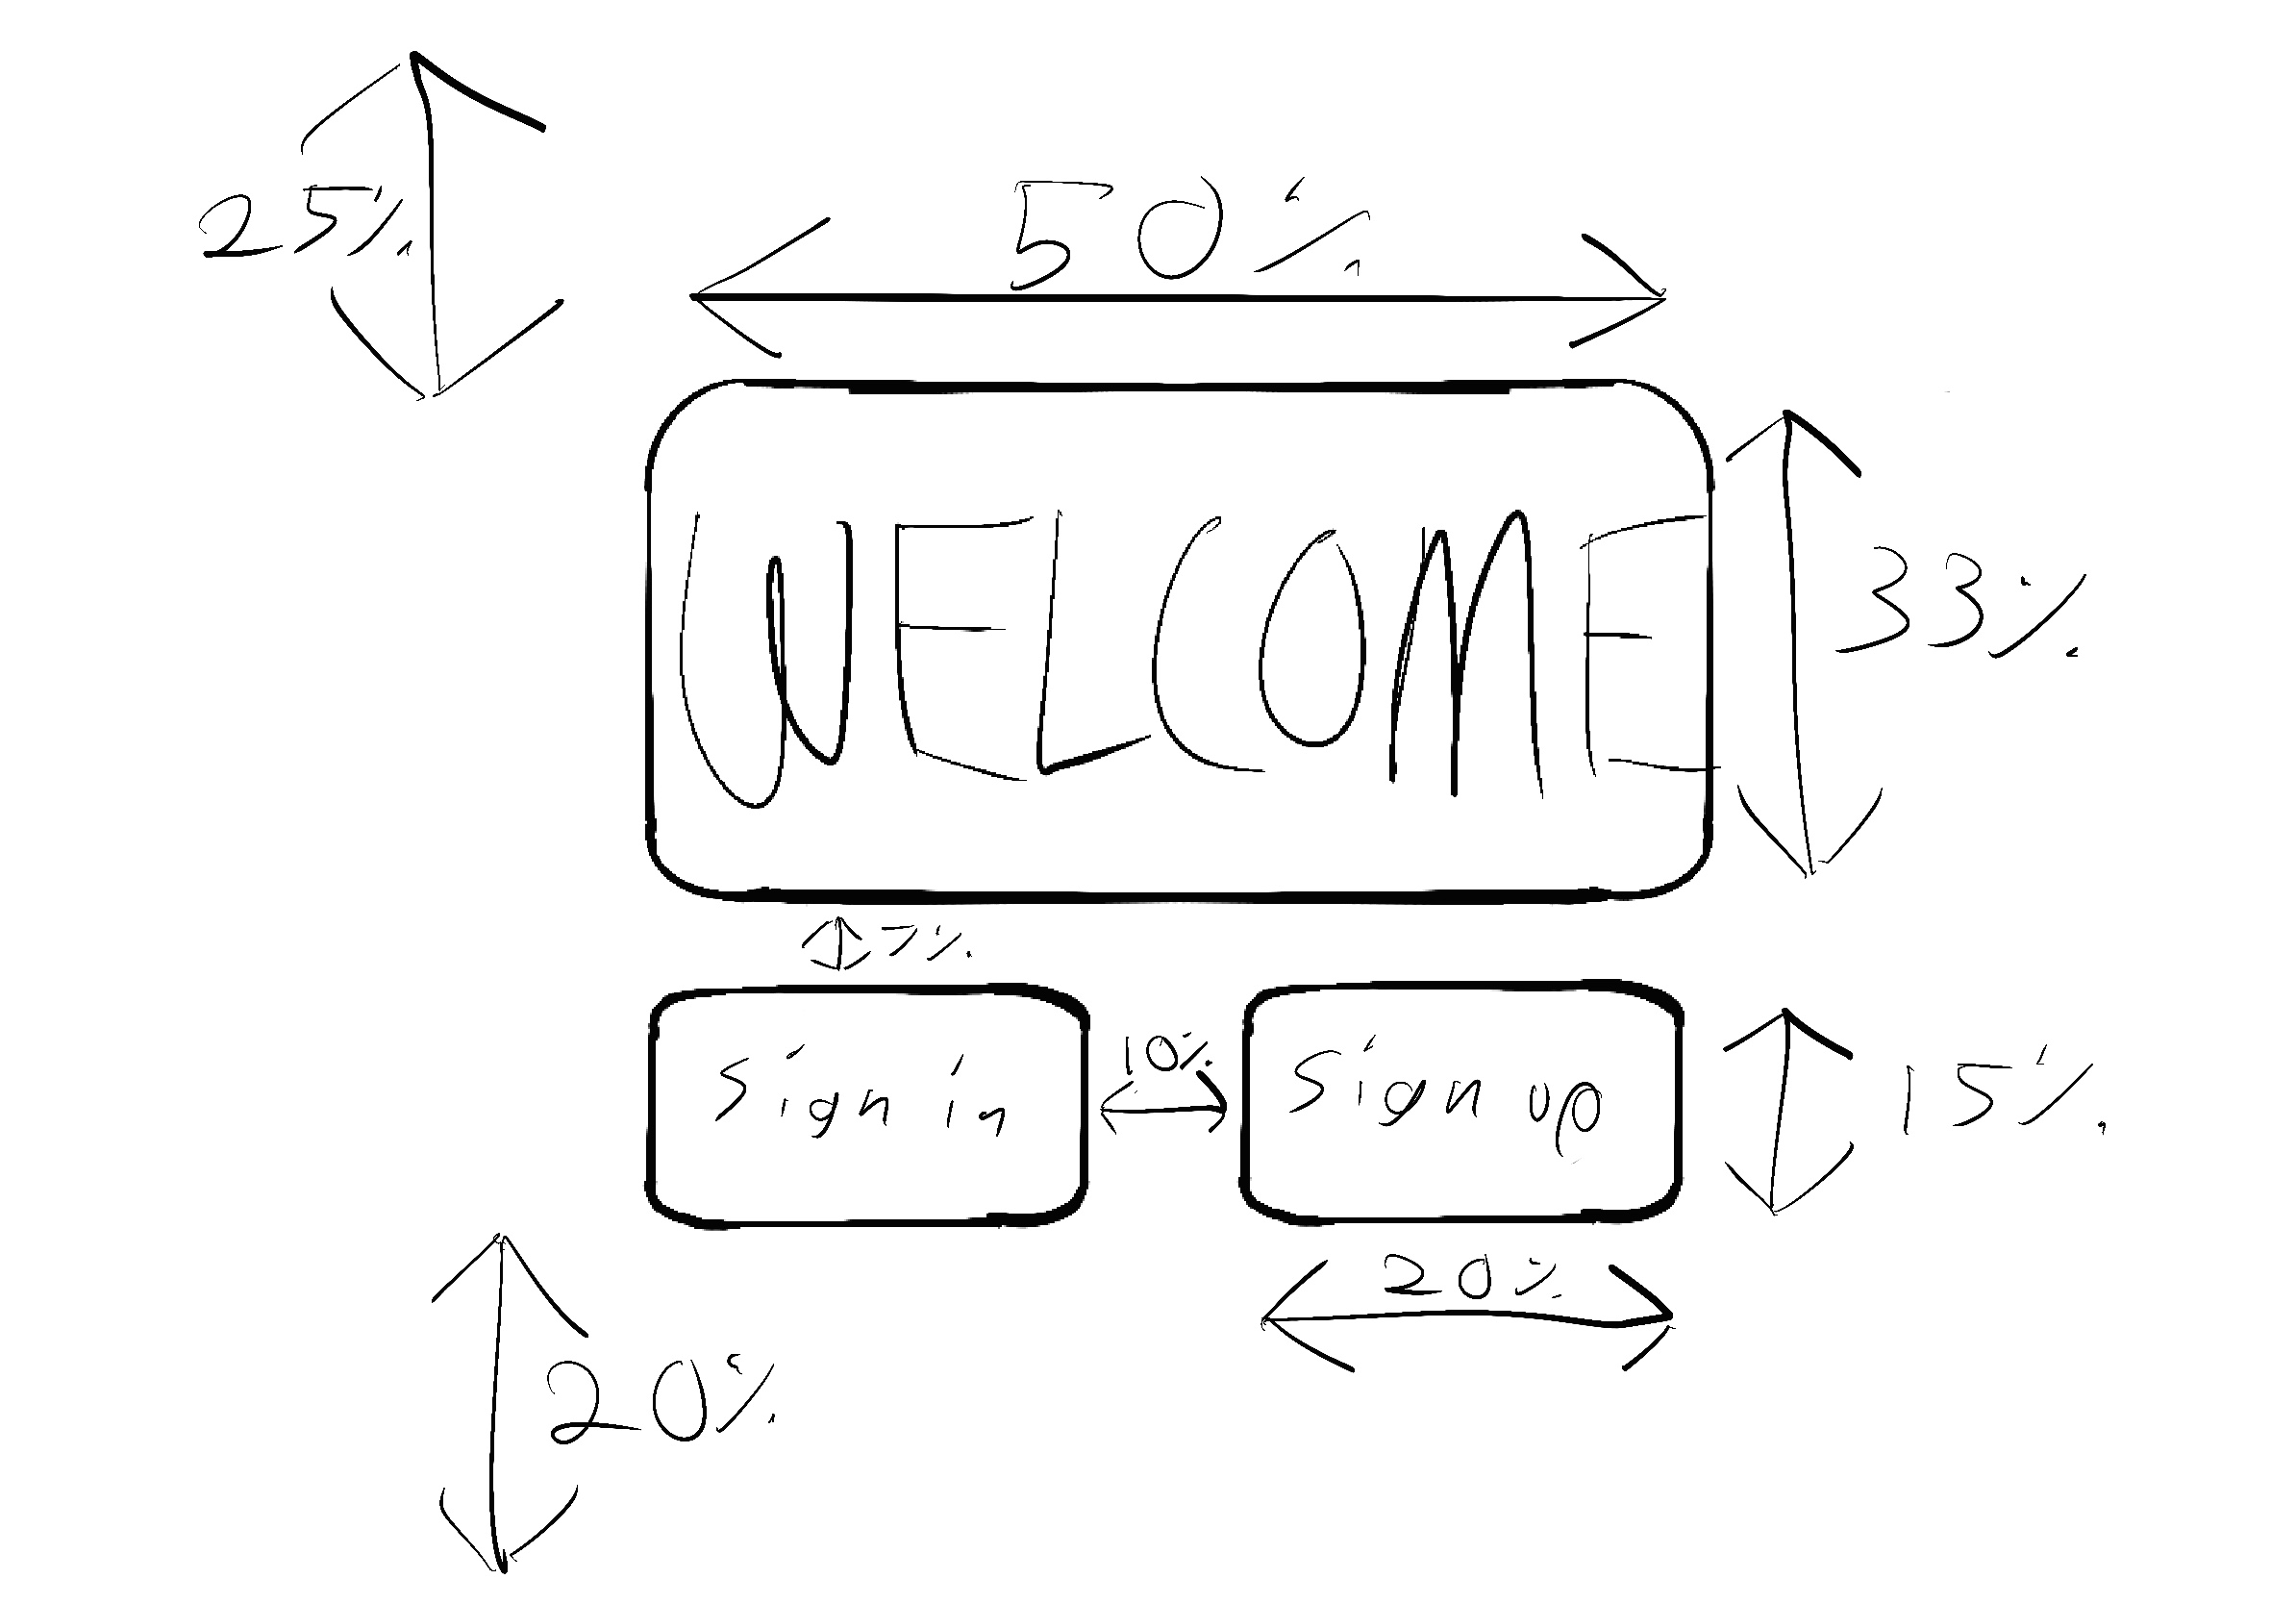 25%
50%
WELCOME
33%
7%
Sign in
10%
Sign up
15%
20%
20%